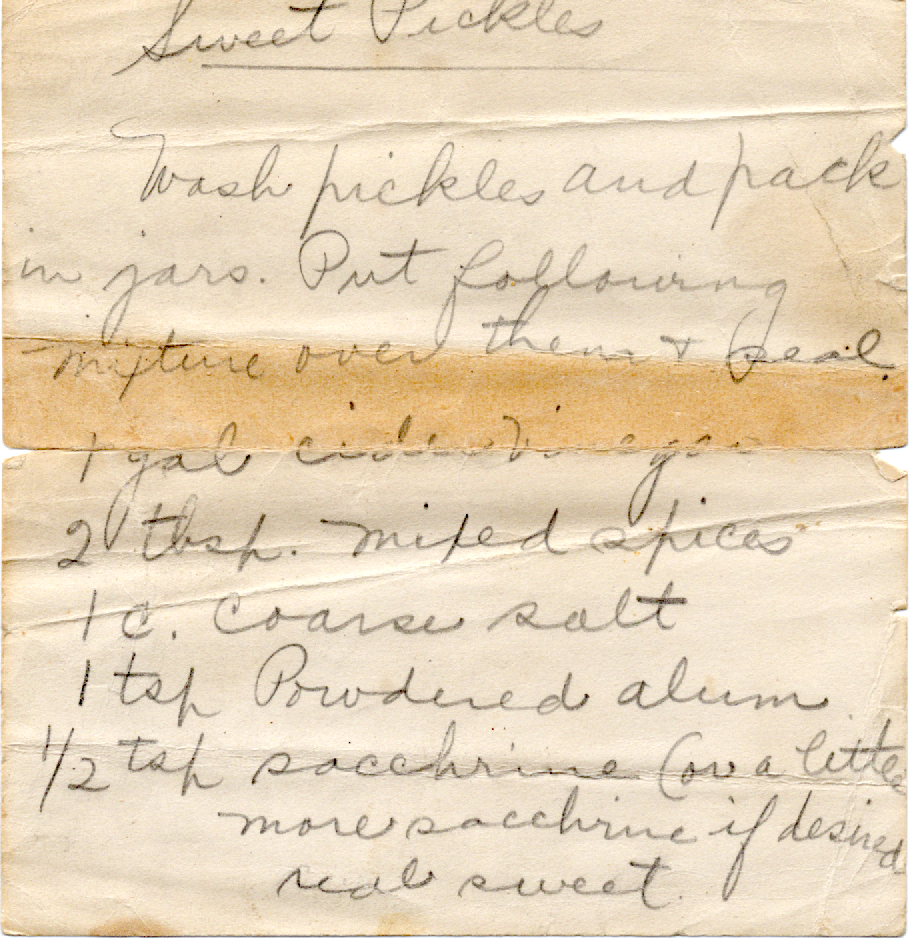 Sweet Pickles
Wash pickles and pack
in jars. Put following
mixture over them + seal.
1 gal cider Vinegar
2 tbsp. mixed spices
1 c. Coarse salt
1 tsp Powdered alum
1/2 tsp sacchrine (or a little
more sacchrine if desired
real sweet.